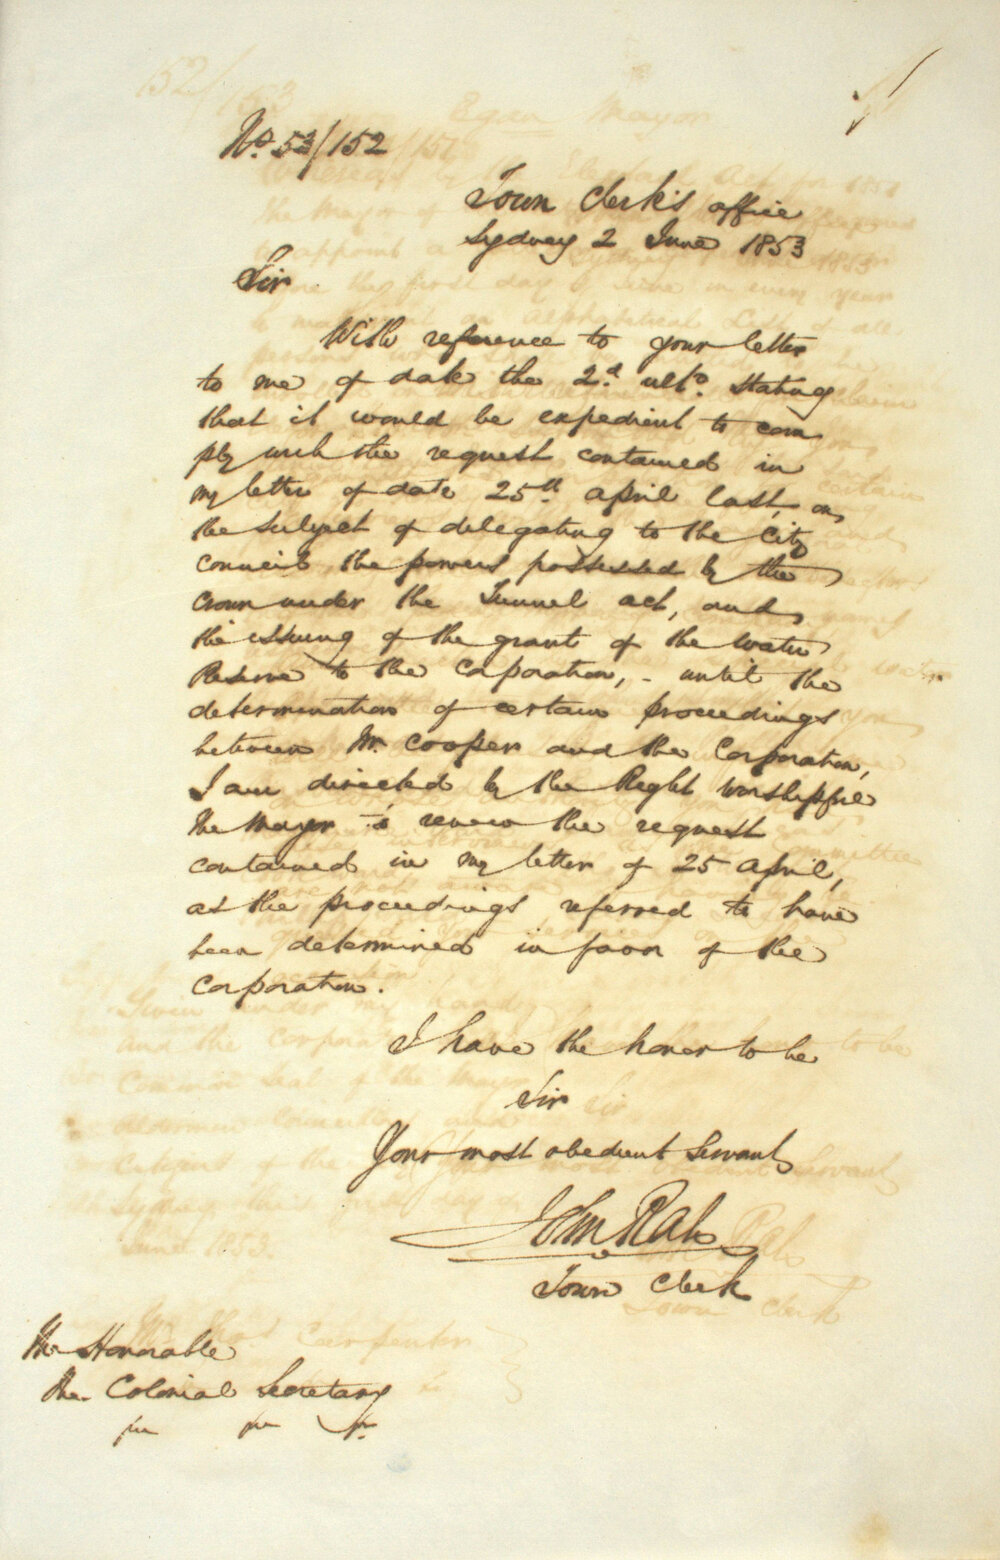 No. 53/152
Town Clerk's office
Sydney 2 June 1853
Sir
With reference to your letter
to me of date the 2.d ulto. stating
that it would be expedient to com
ply with the request contained in
my letter of date 25th april last, on
the subject of delegating to the City
council the powers possessed by the
Crown under the Tunnel act, and
the issuing of the grant of the water
Reserve to the Corporation, - until the
determination of certain proceedings
between Mr. Cooper and the Corporation,
I am directed by the Right worshipful
the Mayor to renew the request
contained in my letter of 25 april,
as the proceedings referred to have
been determined in favor of the
Corporation.
I have the honor to be
Sir
Your most obedient Servant
John Rae
Town Clerk
The Honorable
The Colonial Secretary